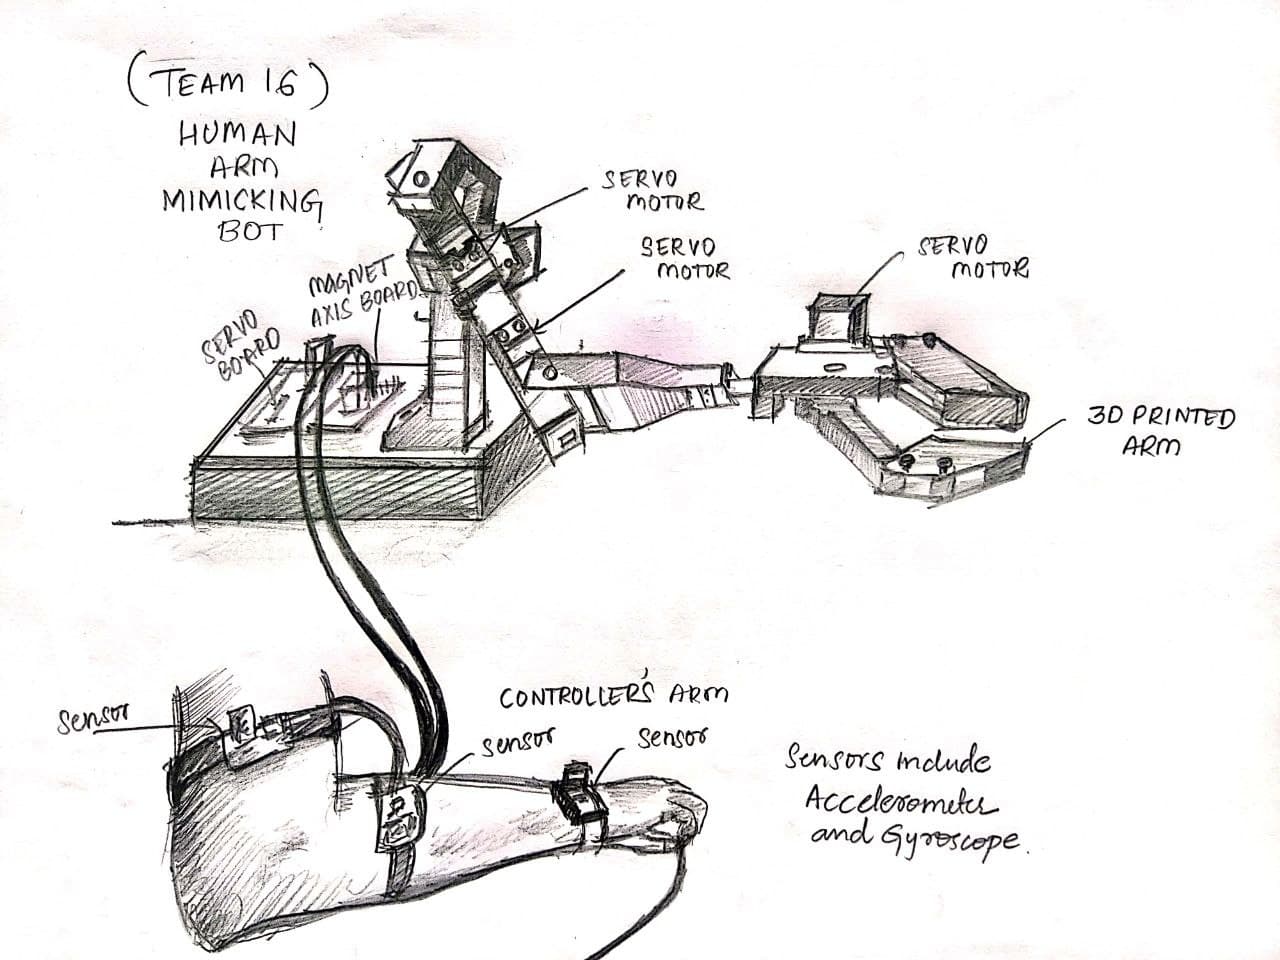 (TEAM 16)
HUMAN
ARM
MIMICKING
BOT
SERVO
MOTOR
SERVO
MOTOR
SERVO
MOTOR
MAGNET
AXIS BOARD
SERVO
BOARD
3D PRINTED
ARM
CONTROLLER'S ARM
Sensor
Sensor
Sensor
Sensors include
Accelerometer
and Gyroscope.